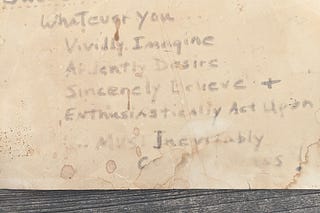 Whatever You
Vividly Imagine
Ardently Desire
Sincerely Believe +
Enthusiastically Act Upon
Must Inevitably